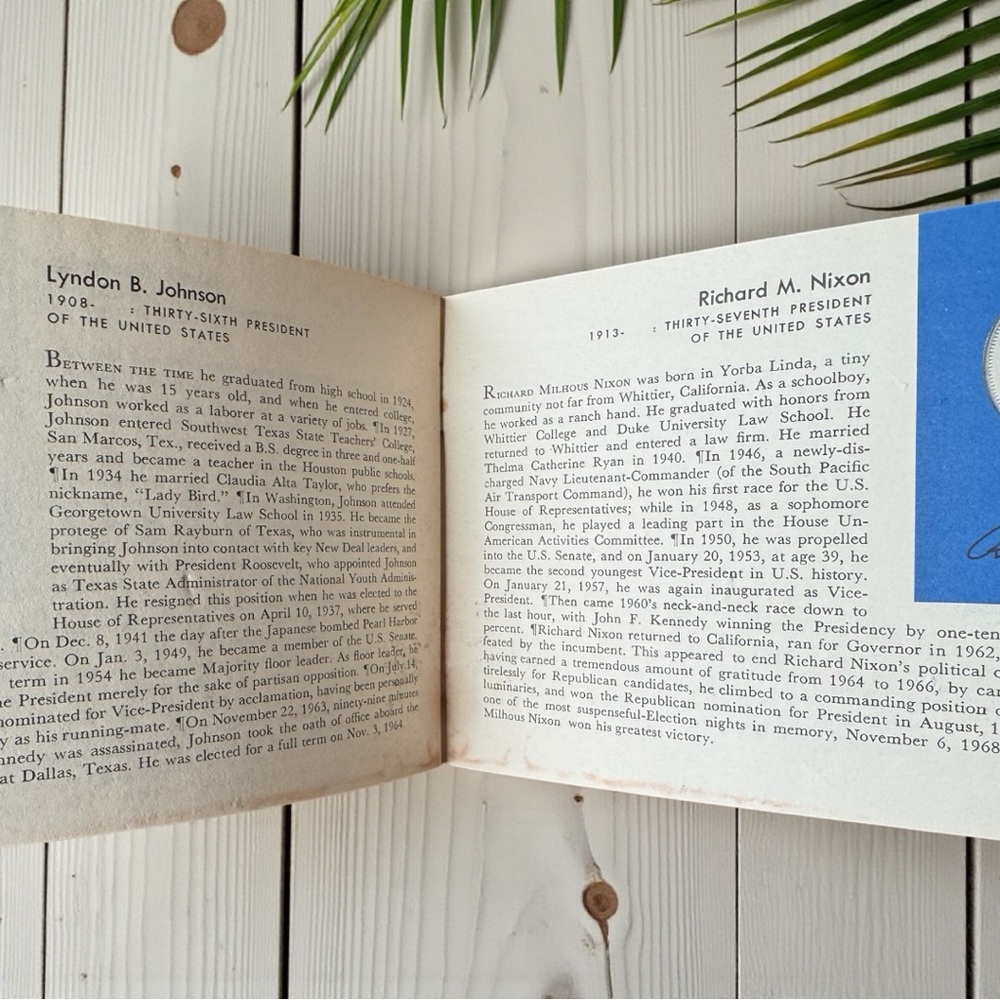 Lyndon B. Johnson
1908- : THIRTY-SIXTH PRESIDENT
OF THE UNITED STATES
BETWEEN THE TIME he graduated from high school in 1924,
when he was 15 years old, and when he entered college,
Johnson worked as a laborer at a variety of jobs. ¶In 1927,
Johnson entered Southwest Texas State Teachers' College,
San Marcos, Tex., received a B.S. degree in three and one-half
years and became a teacher in the Houston public schools.
¶In 1934 he married Claudia Alta Taylor, who prefers the
nickname, "Lady Bird." ¶In Washington, Johnson attended
Georgetown University Law School in 1935. He became the
protege of Sam Rayburn of Texas, who was instrumental in
bringing Johnson into contact with key New Deal leaders, and
eventually with President Roosevelt, who appointed Johnson
as Texas State Administrator of the National Youth Adminis-
tration. He resigned this position when he was elected to the
House of Representatives on April 10, 1937, where he served
. ¶On Dec. 8, 1941 the day after the Japanese bombed Pearl Harbor
service. On Jan. 3, 1949, he became a member of the U.S. Senate,
term in 1954 he became Majority floor leader. As floor leader, he
e President merely for the sake of partisan opposition. ¶On July 14,
nominated for Vice-President by acclamation, having been personally
y as his running-mate. ¶On November 22, 1963, ninety-nine minutes
nnedy was assassinated, Johnson took the oath of office aboard the
at Dallas, Texas. He was elected for a full term on Nov. 3, 1964.
Richard M. Nixon
1913- : THIRTY-SEVENTH PRESIDENT
OF THE UNITED STATES
RICHARD MILHOUS NIXON was born in Yorba Linda, a tiny
community not far from Whittier, California. As a schoolboy,
he worked as a ranch hand. He graduated with honors from
Whittier College and Duke University Law School. He
returned to Whittier and entered a law firm. He married
Thelma Catherine Ryan in 1940. ¶In 1946, a newly-dis-
charged Navy Lieutenant-Commander (of the South Pacific
Air Transport Command), he won his first race for the U.S.
House of Representatives; while in 1948, as a sophomore
Congressman, he played a leading part in the House Un-
American Activities Committee. ¶In 1950, he was propelled
into the U.S. Senate, and on January 20, 1953, at age 39, he
became the second youngest Vice-President in U.S. history.
On January 21, 1957, he was again inaugurated as Vice-
President. ¶Then came 1960's neck-and-neck race down to
the last hour, with John F. Kennedy winning the Presidency by one-ten
percent. ¶Richard Nixon returned to California, ran for Governor in 1962,
feated by the incumbent. This appeared to end Richard Nixon's political
having earned a tremendous amount of gratitude from 1964 to 1966, by ca
tirelessly for Republican candidates, he climbed to a commanding position
luminaries, and won the Republican nomination for President in August, 1
one of the most suspenseful-Election nights in memory, November 6, 1968
Milhous Nixon won his greatest victory.